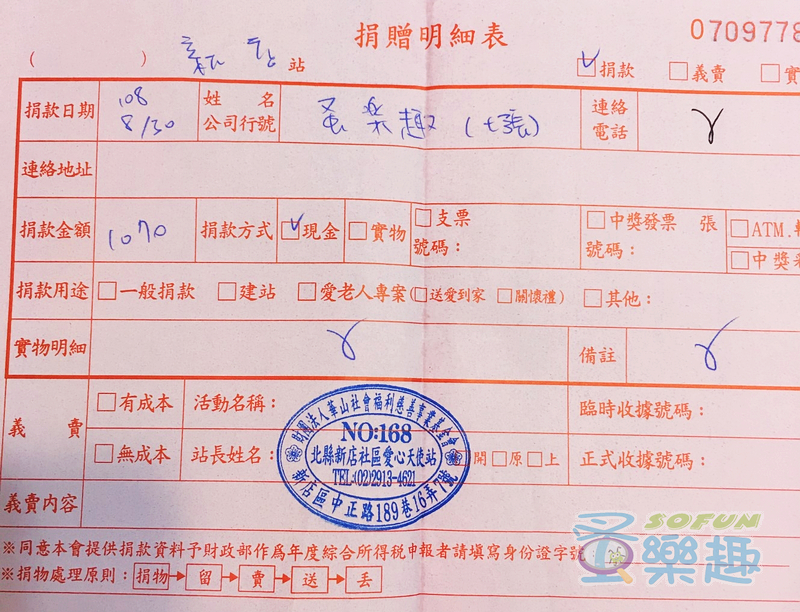 捐贈明細表
0709778
( ) 新店 站
捐款 義賣 實
捐款日期 108 8/30 姓名 公司行號 蚤樂趣(七張) 連絡電話
連絡地址
捐款金額 1070 捐款方式 現金 實物 支票 號碼： 中獎發票 張 號碼： ATM.轉 中獎
捐款用途 一般捐款 建站 愛老人專案(送愛到家 關懷禮) 其他：
實物明細 備註
義賣 有成本 活動名稱： 臨時收據號碼：
無成本 站長姓名： 開 原 上 正式收據號碼：
財團法人華山社會福利慈善事業基金會
NO:168
北縣新店社區愛心天使站
TEL:(02)2913-4621
新店區中正路189巷16弄7號
義賣內容
※同意本會提供捐款資料予財政部作為年度綜合所得稅申報者請填寫身份證字號
※捐物處理原則：捐物→留→賣→送→丟
SOFUN
蚤樂趣